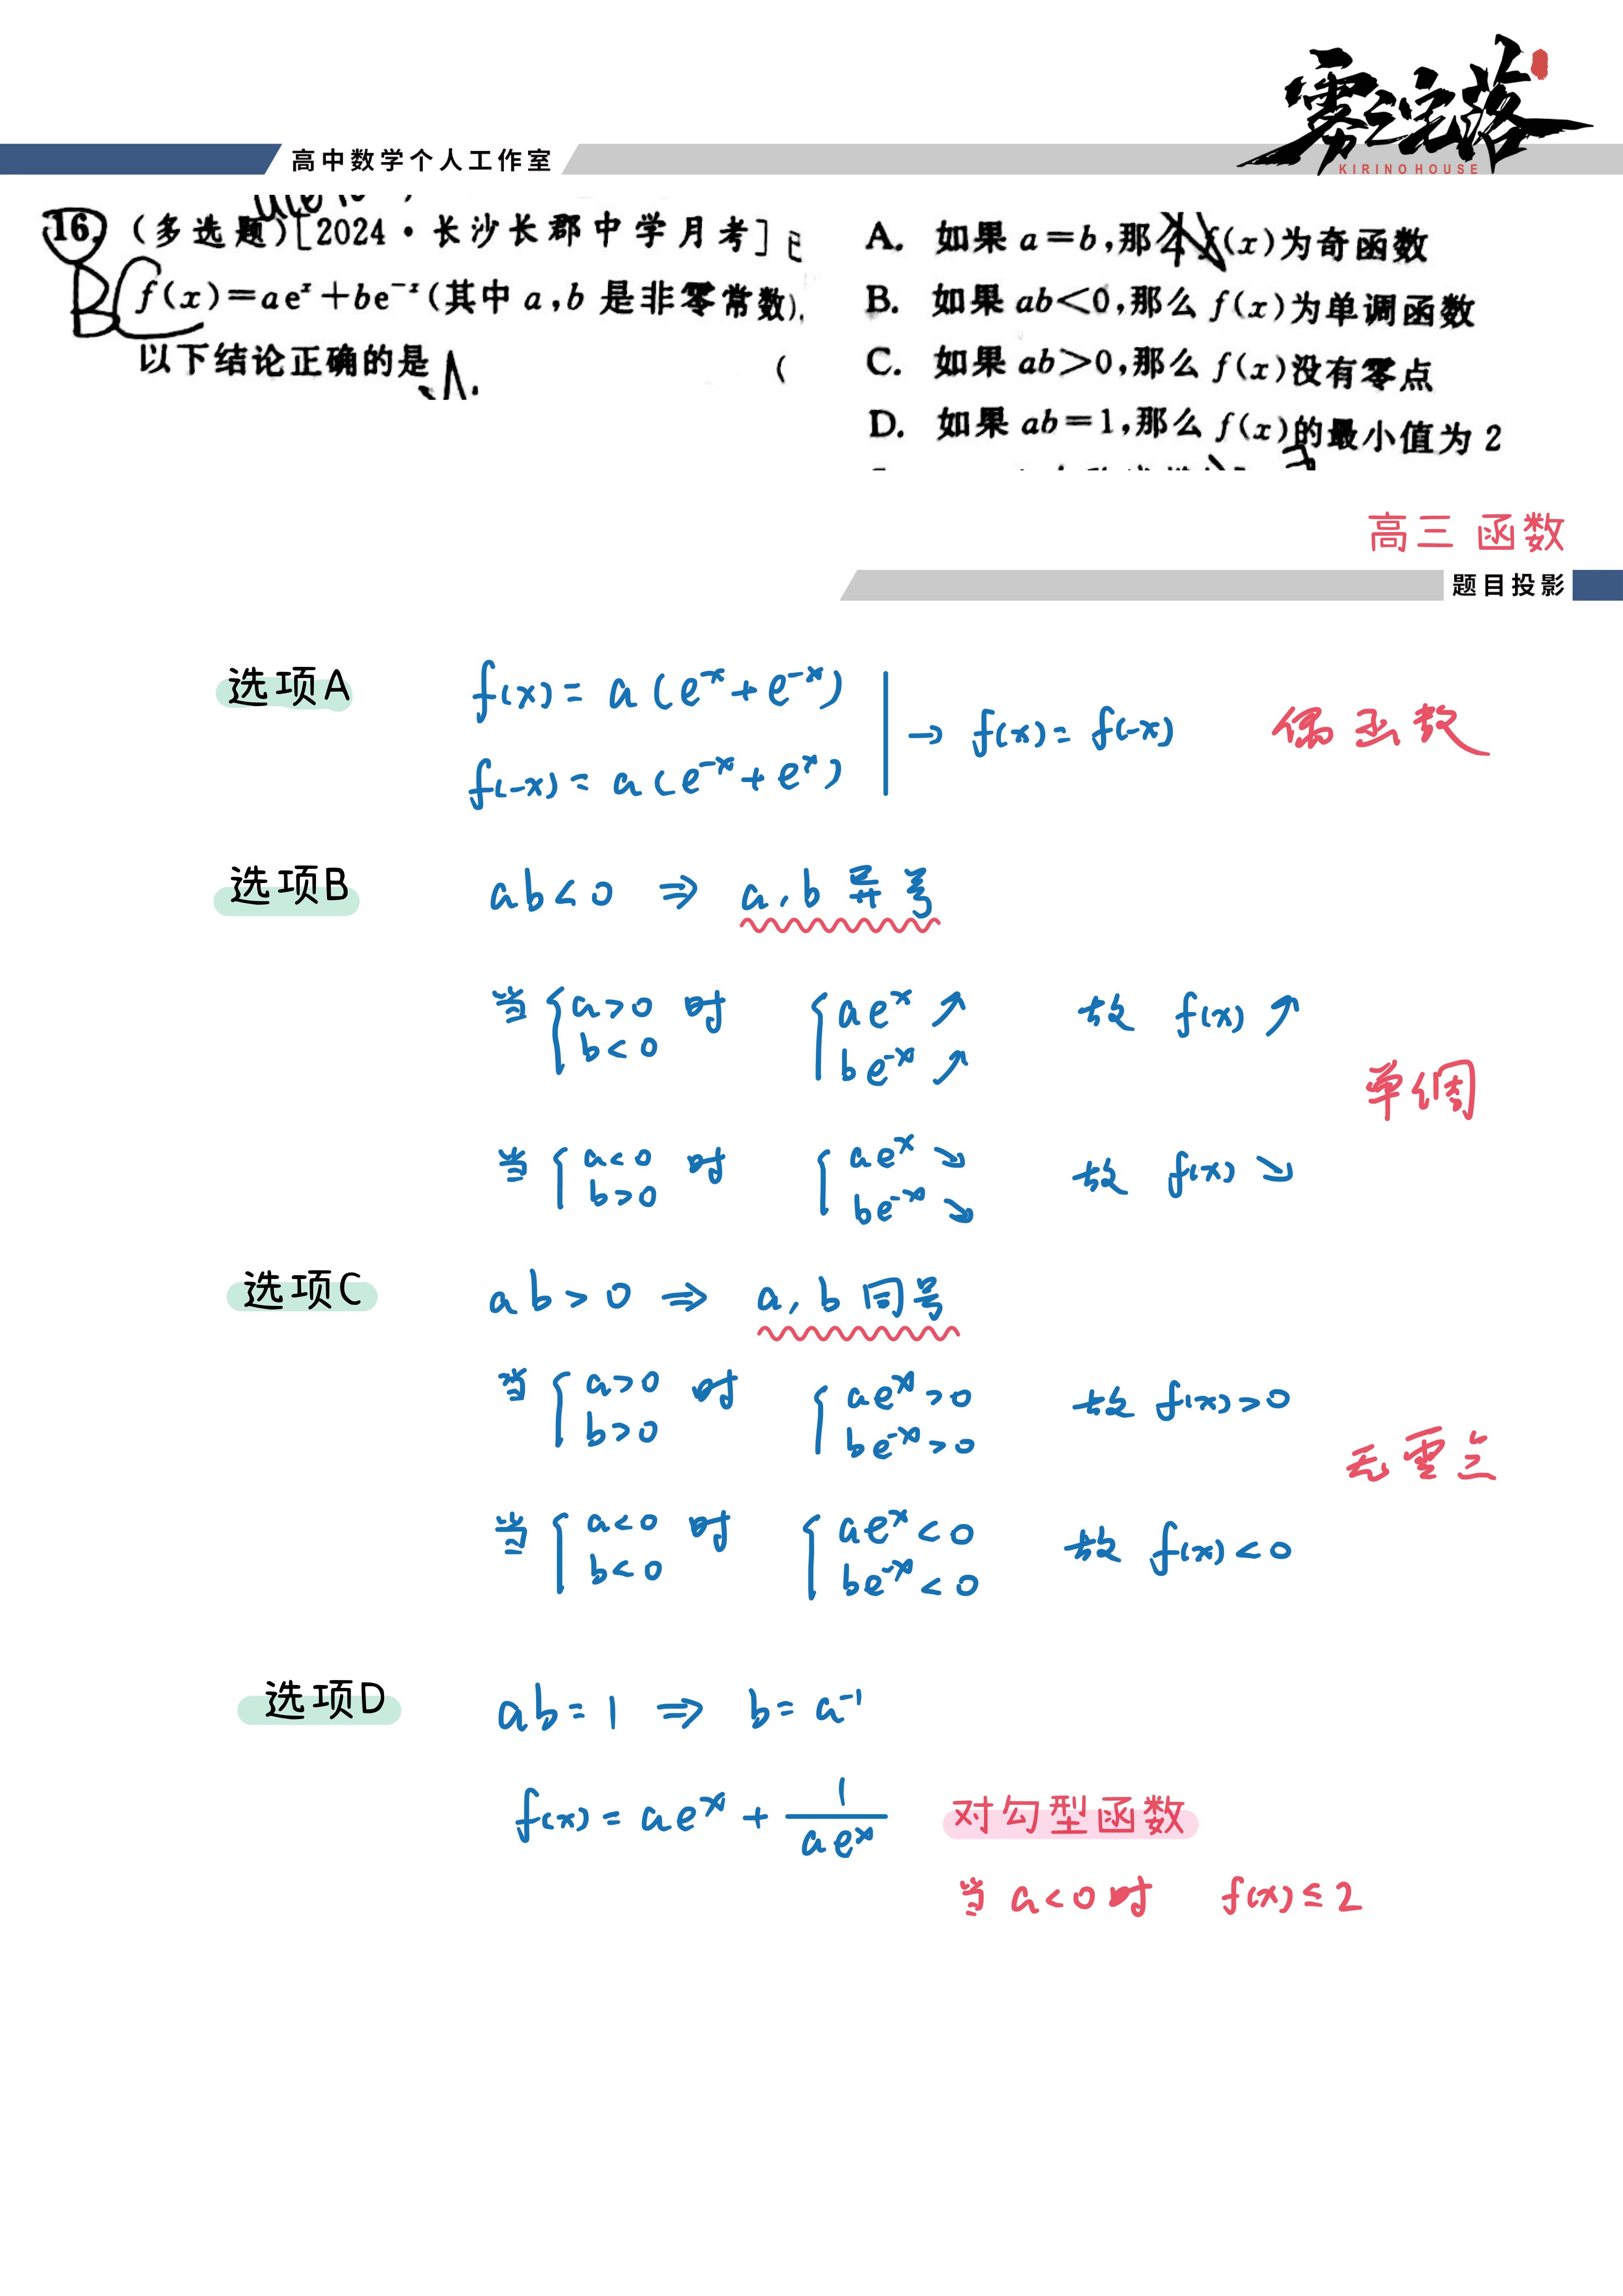 雾之宅落
KIRINO HOUSE
高中数学个人工作室
16. (多选题)[2024·长沙长郡中学月考]
f(x)=ae^x+be^{-x}(其中 a,b 是非零常数).
以下结论正确的是 (
BC
A. 如果 a=b,那么 f(x)为奇函数
B. 如果 ab<0,那么 f(x)为单调函数
C. 如果 ab>0,那么 f(x)没有零点
D. 如果 ab=1,那么 f(x)的最小值为 2
高三 函数
题目投影
选项A f(x) = a(e^x+e^{-x})
f(-x) = a(e^{-x}+e^x)
→ f(x)= f(-x) 偶函数
选项B ab<0 ⇒ a,b 异号
当 { a>0 b<0 时 { ae^x ↗ be^{-x} ↗ 故 f(x) ↗
单调
当 { a<0 b>0 时 { ae^x ↘ be^{-x} ↘ 故 f(x) ↘
选项C ab>0 ⇒ a,b 同号
当 { a>0 b>0 时 { ae^x>0 be^{-x}>0 故 f(x)>0
无零点
当 { a<0 b<0 时 { ae^x<0 be^{-x}<0 故 f(x)<0
选项D ab=1 ⇒ b=a^{-1}
f(x) = ae^x + 1/(ae^x) 对勾型函数
当 a<0 时 f(x)≤2